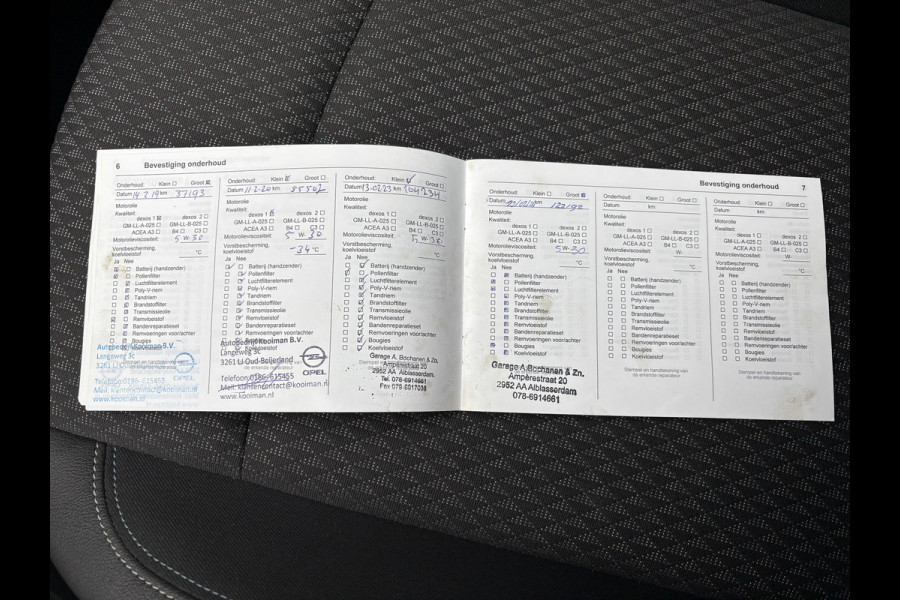 6 Bevestiging onderhoud
Onderhoud: Klein Groot
Datum 14-2-19 km 37193
Motorolie
Kwaliteit:
dexos 1 dexos 2
GM-LL-A-025 GM-LL-B-025
ACEA A3 B4 C3
Motorolieviscositeit: 5 W- 30
Vorstbescherming, koelvloeistof °C
Ja Nee
Batterij (handzender)
Pollenfilter
Luchtfilterelement
Poly-V-riem
Tandriem
Brandstoffilter
Transmissieolie
Remvloeistof
Bandenreparatieset
Remvoeringen voor/achter
Bougies
Autobedrijf Kooiman B.V.
Langeweg 3c
3261 LJ Oud-Beijerland
Telefoon 0186-615455
Mail: klantencontact@kooiman.nl
www.kooiman.nl
OPEL
Onderhoud: Klein Groot
Datum 11-2-20 km 85502
Motorolie
Kwaliteit:
dexos 1 dexos 2
GM-LL-A-025 GM-LL-B-025
ACEA A3 B4 C3
Motorolieviscositeit: 5 W- 30
Vorstbescherming, koelvloeistof -34 °C
Ja Nee
Batterij (handzender)
Pollenfilter
Luchtfilterelement
Poly-V-riem
Tandriem
Brandstoffilter
Transmissieolie
Remvloeistof
Bandenreparatieset
Remvoeringen voor/achter
Autobedrijf Kooiman B.V.
Langeweg 3c
3261 LJ Oud-Beijerland
Telefoon 0186-615455
Mail: klantencontact@kooiman.nl
www.kooiman.nl
OPEL
Onderhoud: Klein Groot
Datum 13-02-23 km 104234
Motorolie
Kwaliteit:
dexos 1 dexos 2
GM-LL-A-025 GM-LL-B-025
ACEA A3 B4 C3
Motorolieviscositeit: 5 W- 30
Vorstbescherming, koelvloeistof °C
Ja Nee
Batterij (handzender)
Pollenfilter
Luchtfilterelement
Poly-V-riem
Tandriem
Brandstoffilter
Transmissieolie
Remvloeistof
Bandenreparatieset
Remvoeringen voor/achter
Bougies
Koelvloeistof
Garage A. Bochanen & Zn.
Ampèrestraat 20
2952 AA Alblasserdam
Tel. 078-6914661
Fax 078-6917038
Bevestiging onderhoud 7
Onderhoud: Klein Groot
Datum km 122192
Motorolie
Kwaliteit:
dexos 1 dexos 2
GM-LL-A-025 GM-LL-B-025
ACEA A3 B4 C3
Motorolieviscositeit: 5 W- 30
Vorstbescherming, koelvloeistof °C
Ja Nee
Batterij (handzender)
Pollenfilter
Luchtfilterelement
Poly-V-riem
Tandriem
Brandstoffilter
Transmissieolie
Remvloeistof
Bandenreparatieset
Remvoeringen voor/achter
Bougies
Koelvloeistof
Garage A. Bochanen & Zn.
Ampèrestraat 20
2952 AA Alblasserdam
078-6914661
Onderhoud: Klein Groot
Datum km
Motorolie
Kwaliteit:
dexos 1 dexos 2
GM-LL-A-025 GM-LL-B-025
ACEA A3 B4 C3
Motorolieviscositeit: W-
Vorstbescherming, koelvloeistof °C
Ja Nee
Batterij (handzender)
Pollenfilter
Luchtfilterelement
Poly-V-riem
Tandriem
Brandstoffilter
Transmissieolie
Remvloeistof
Bandenreparatieset
Remvoeringen voor/achter
Bougies
Koelvloeistof
Stempel en handtekening van
de erkende reparateur
Onderhoud: Klein Groot
Datum km
Motorolie
Kwaliteit:
dexos 1 dexos 2
GM-LL-A-025 GM-LL-B-025
ACEA A3 B4 C3
Motorolieviscositeit: W-
Vorstbescherming, koelvloeistof °C
Ja Nee
Batterij (handzender)
Pollenfilter
Luchtfilterelement
Poly-V-riem
Tandriem
Brandstoffilter
Transmissieolie
Remvloeistof
Bandenreparatieset
Remvoeringen voor/achter
Bougies
Koelvloeistof
Stempel en handtekening van
de erkende reparateur